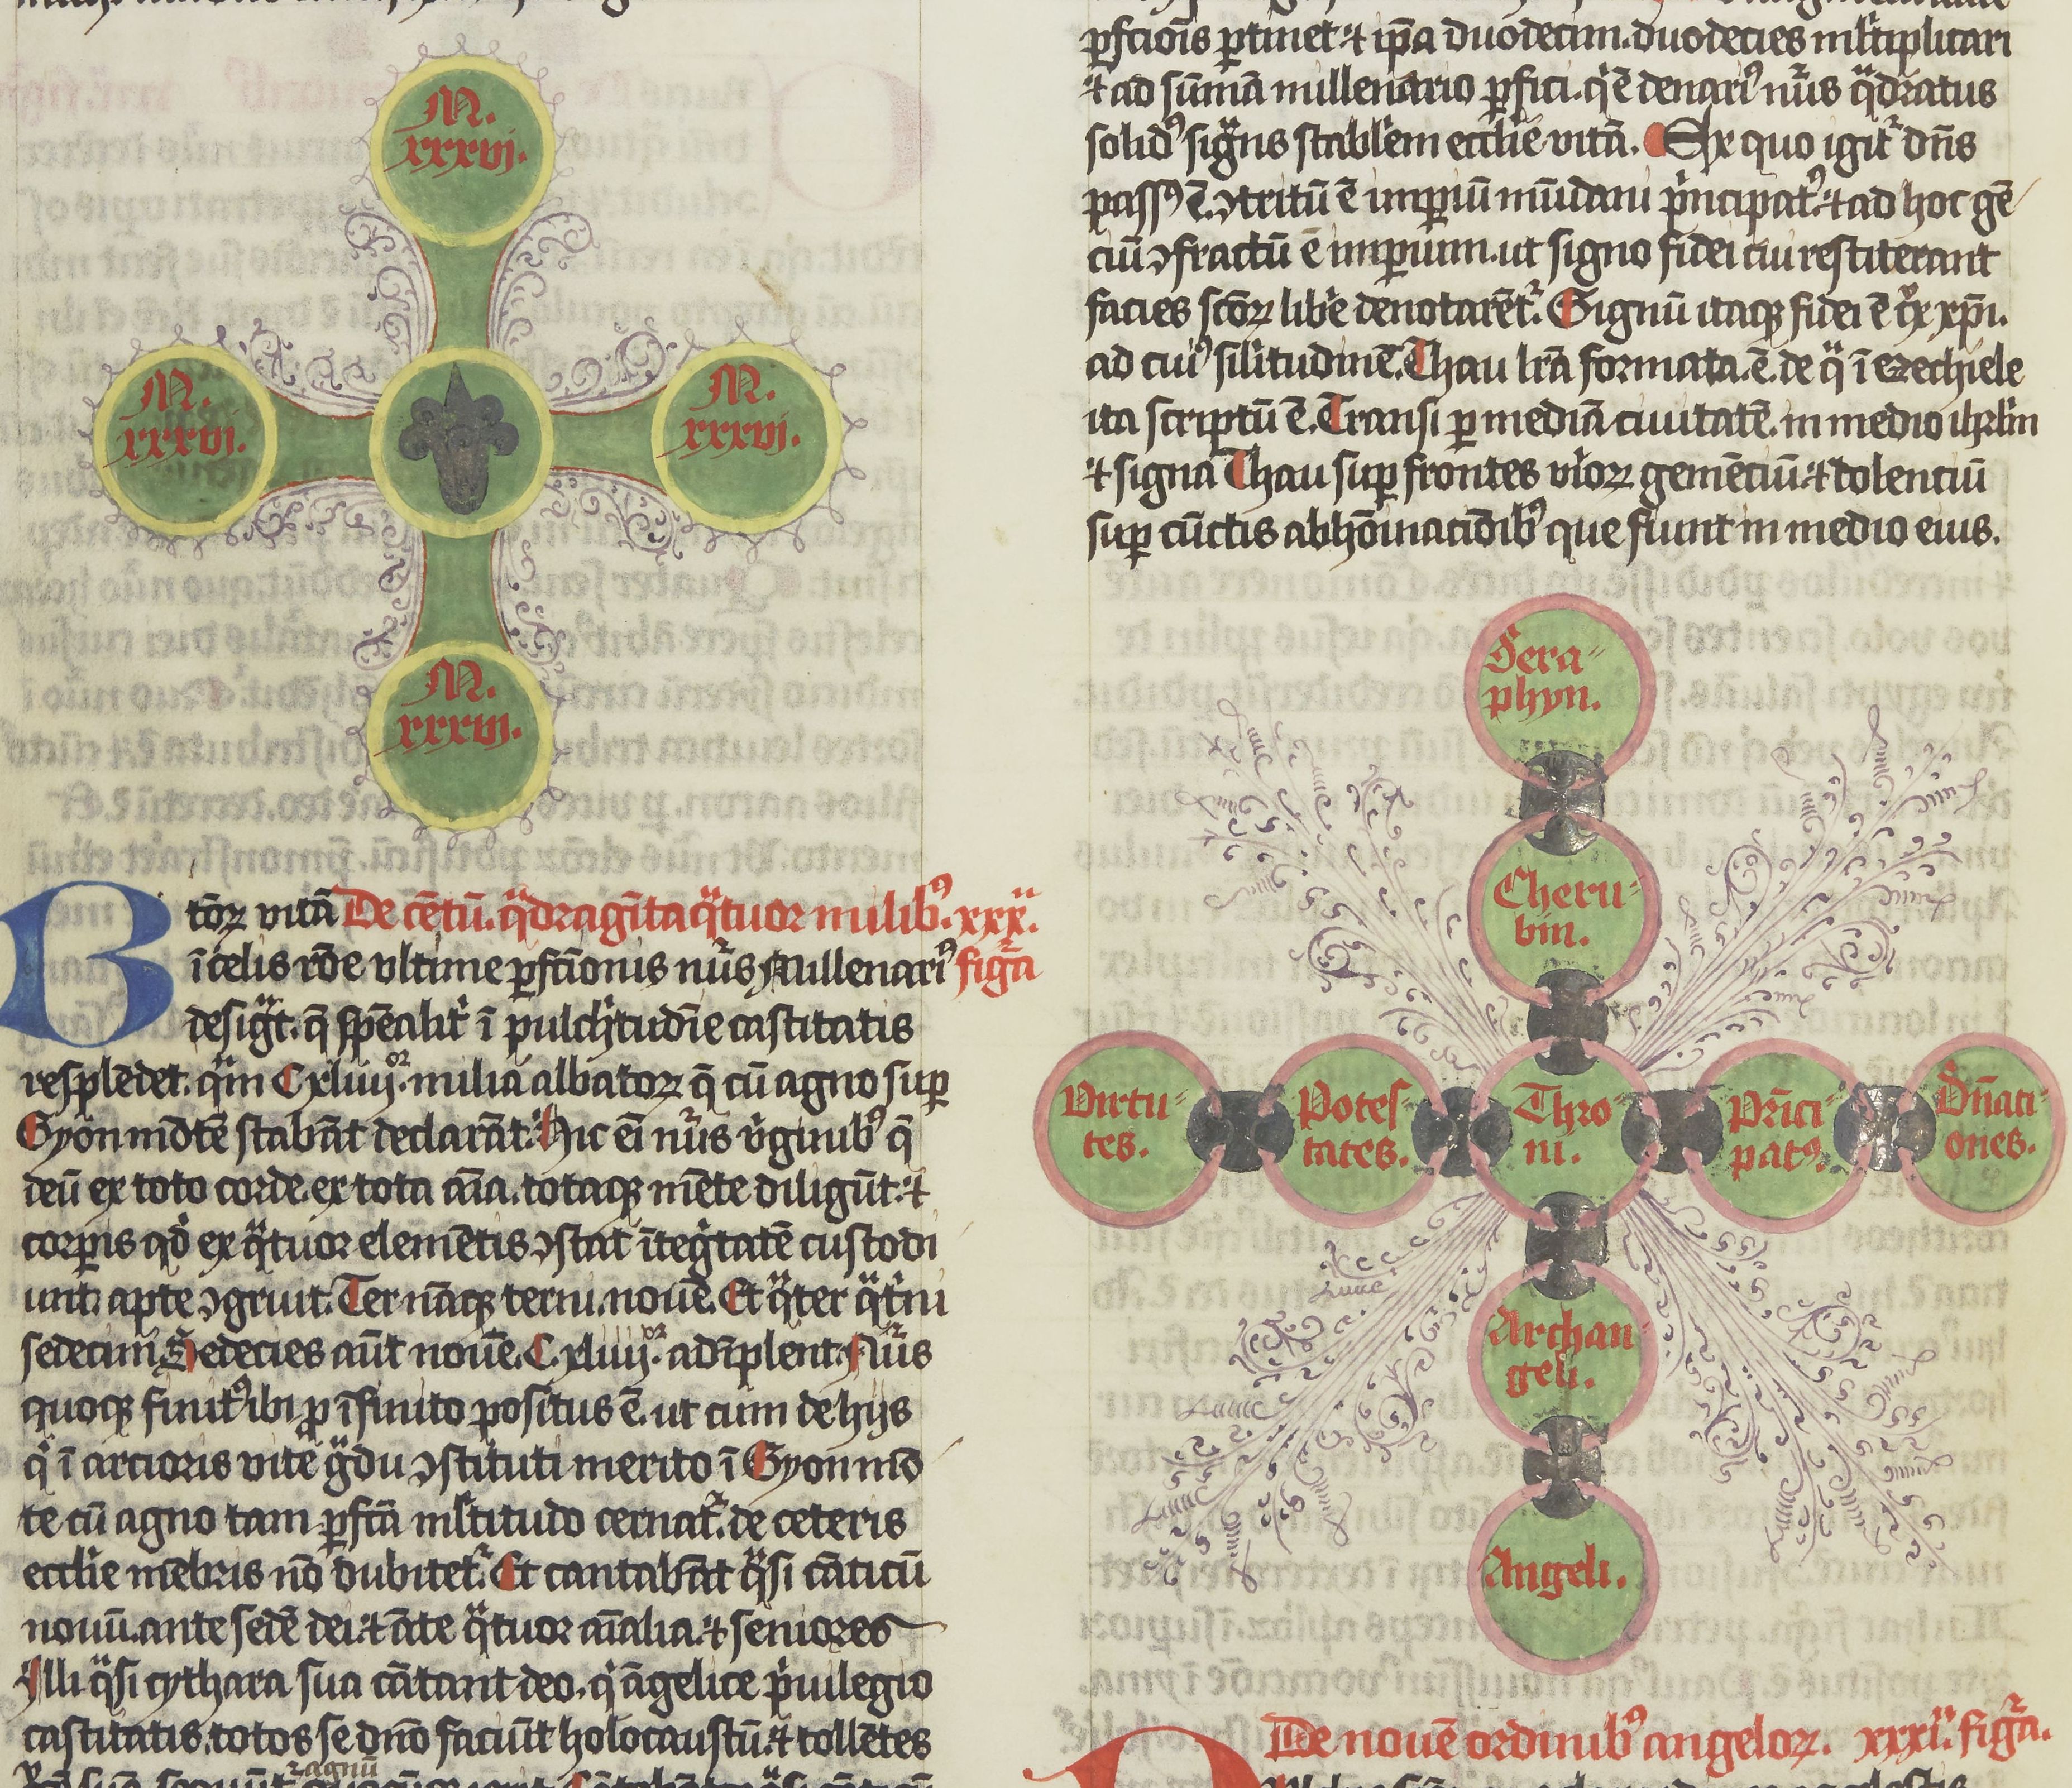 M.
xxxvi.
M.
xxxvi.
M.
xxxvi.
M.
xxxvi.
Btōꝝ vitā De cētū. q̈dragīta q̈tuor milibꝯ. xxx.
ī celis rōe vltime ꝑfcīonis nūs Millenariꝯ figͣa
desigt. q̄ sp̄ealit̓ ī pulch̓tudīe castitatis
resplēdet. qm̄ Cxliiijor. milia albatoꝝ q̄ cū agno suꝑ
Syon mōtē stabāt declarāt. Hic eī nūs v̓ginibꝯ q̄
deū ex toto corde. ex tota aīa. totaqꝫ mēte diligūt. ⁊
corꝑis qd̓ ex q̈tuor elemētis ꝯstat ītegᷓtatē custodi
unt. apte ꝯgruit. Ter nāqꝫ terni. nouē. Et q̈ter q̈t̓ni
sedecim. Sedecies aūt nouē. Cxliiijor. adīplent. Nūs
quoqꝫ finitꝯ ibi ꝓ īfinito positus ē. ut cum de hijs
q̓ ī arcioris vite gͣdu ꝯstituti merito ī Syon mō
te cū agno tam ꝑfcā ml̓titudo cernat̓. de ceteris
eccl̓ie mēbris nō dubitet̓. Et cantabāt q̈si cāticū
nouū. ante sedē dei. ⁊ āte q̈tuor aīalia. ⁊ seniores
Illi q̈si cythara sua cātant deo. q̓ āgelice p̓uilegio
castitatis. totos se dn̄o faciūt holocaustū. ⁊ tollētes
agnū
ꝑfcīōis ꝑtinet. ⁊ ip̄a duodecim. duodecies ml̓tiplicari
⁊ ad sūmā millenario ꝑfici. q̓ ē denariꝯ nūs q̈dratus
solidꝯ sigͣns stabl̓em eccl̓ie vitā. Ex quo igit̓ dn̄s
passꝯ ē. ꝯtritū ē imꝑiū mūdani p̓ncipatꝯ. ⁊ ad hoc gē
ciū ꝯfractū ē imꝑium. ut signo fidei cui restiterant
facies scōꝝ libe̓ denotarēt̓. Signū itaqꝫ fidei ē crͦx xp̄i.
ad cuiꝯ sil̓itudinē. Thau lr̄a formata. ē. de q̈ ī ezechiele
ita scriptū ē. Transi ꝑ mediā ciuitatē. in medio ihrl̓m
⁊ signa Thau suꝑ frontes viroꝝ gemēciū. ⁊ dolenciū
suꝑ cūctis abhōīnacōībꝯ que fiunt in medio eius.
Sera-
phyn.
Cheru-
bin.
Virtu-
tes.
Potes-
tates.
Thro
ni.
Pri̅ci-
patꝯ.
Dn̄ati-
ones.
Archan-
geli.
Angeli.
De nouē ordinibꝯ angeloꝝ. xxxi. figͣa.